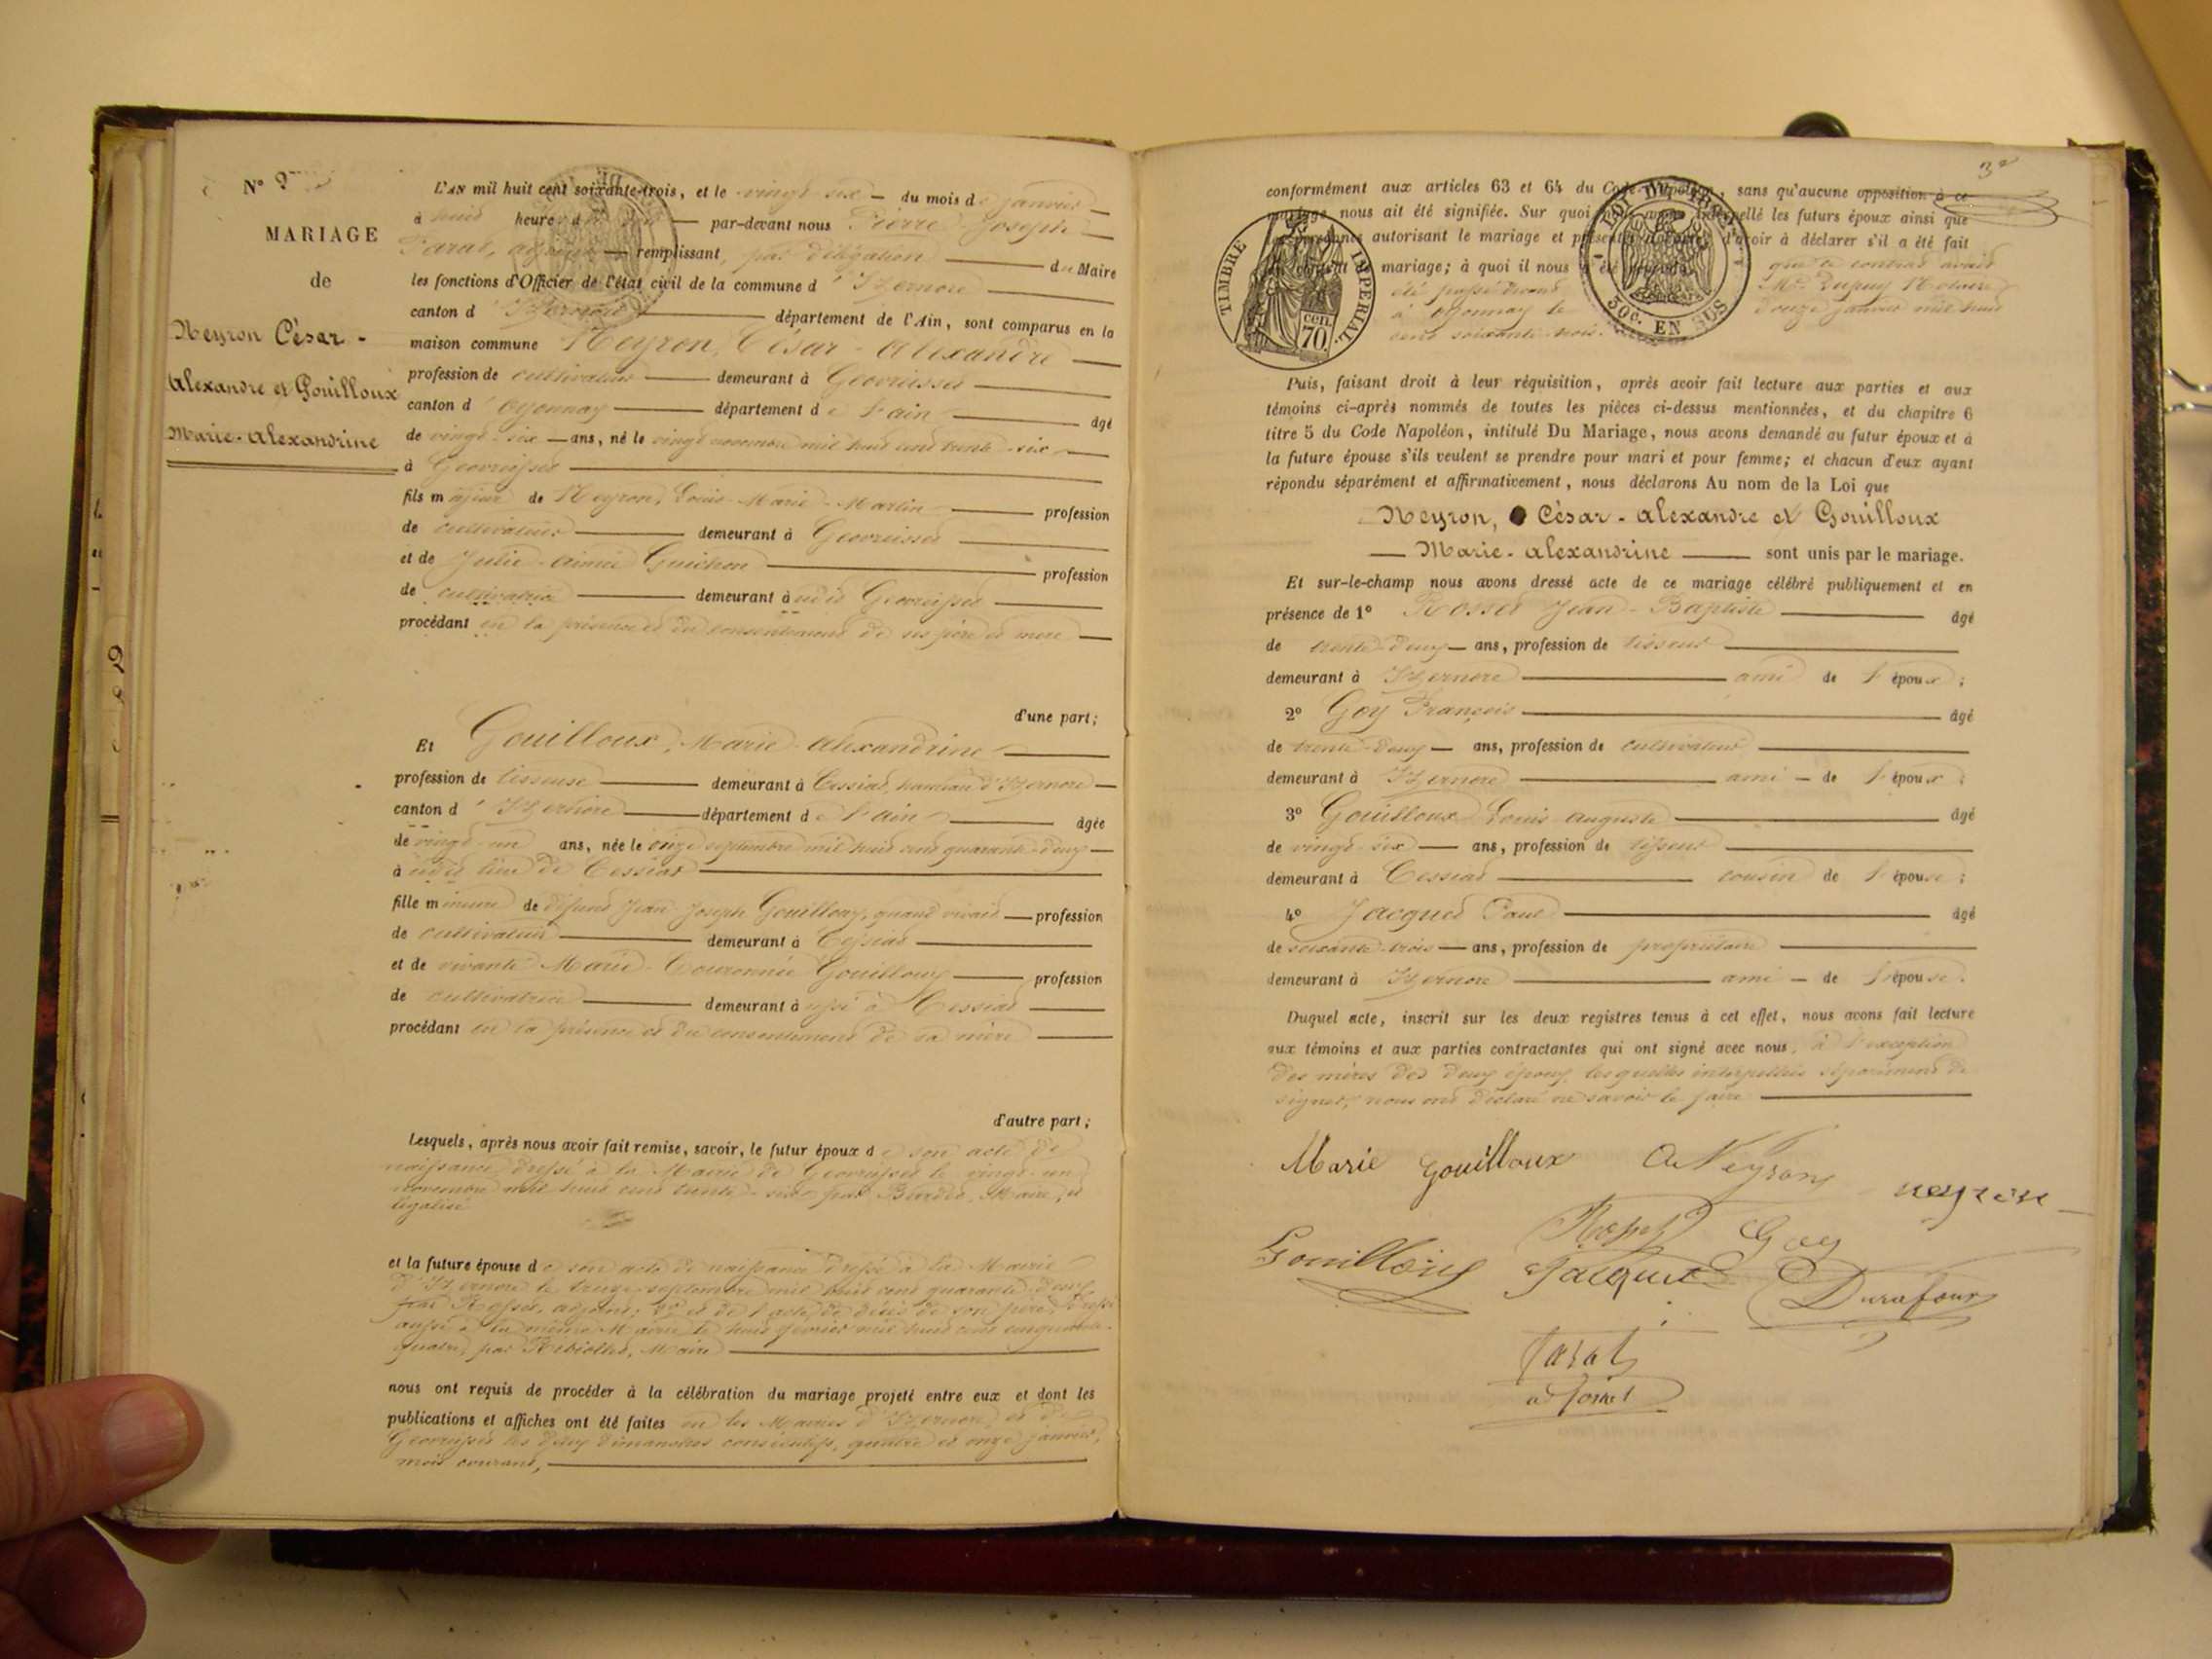 N° 2
MARIAGE
de
Neyron César-
Alexandre et Gouilloux
Marie-Alexandrine
L'AN mil huit cent soixante-trois, et le vingt-six du mois de janvier
à huit heures du par-devant nous Pierre Joseph
Tarat, adjoint remplissant, par délégation du Maire
les fonctions d'Officier de l'état civil de la commune d'Izernore
canton d'Izernore département de l'Ain, sont comparus en la
maison commune Neyron, César-Alexandre
profession de cultivateur demeurant à Geovreisset
canton d'Oyonnax département de l'ain âgé
de vingt-six ans, né le vingt novembre mil huit cent trente-six
à Geovreisset
fils majeur de Neyron, Louis-Marie-Martin profession
de cultivateur demeurant à Geovreisset
et de Julie-Aimée Guichon profession
de cultivatrice demeurant à udit Geovreisset
procédant en la présence et du consentement de ses père et mère
d'une part;
Et Gouilloux, Marie-Alexandrine
profession de tisseuse demeurant à Cessiat, hameau d'Izernore
canton d'Izernore département de l'ain âgée
de vingt-un ans, née le onze septembre mil huit cent quarante-deux
à udit lieu de Cessiat
fille mineure de défunt Jean-Joseph Gouilloux, quand vivait profession
de cultivateur demeurant à Cessiat
et de vivante Marie-Couronnée Gouilloux profession
de cultivatrice demeurant à ussi à Cessiat
procédant en la présence et du consentement de sa mère
d'autre part;
Lesquels, après nous avoir fait remise, savoir, le futur époux de son acte de
naissance, dressé à la Mairie de Geovreisset le vingt-un
novembre mil huit cent trente-six par Maire, et
légalisé
et la future épouse de son acte de naissance dressé à la Mairie
d'Izernore le treize septembre mil huit cent quarante-deux
par Rosset, adjoint; 2° et de l'acte de décès de son père, dressé
aussi à la même Mairie le huit février mil huit cent cinquante-
quatre, par Maire
nous ont requis de procéder à la célébration du mariage projeté entre eux et dont les
publications et affiches ont été faites en les Mairies d'Izernore et de
Geovreisset les deux dimanches consécutifs, quatre et onze janvier,
mois courant,
3e
conformément aux articles 63 et 64 du Code Napoléon, sans qu'aucune opposition à ce
mariage nous ait été signifiée. Sur quoi nous avons interpellé les futurs époux ainsi que
les personnes autorisant le mariage et présentes d'avoir à déclarer s'il a été fait
un contrat de mariage; à quoi il nous a été répondu que le contrat avait
été passé devant Me Dupuy Notaire
à Oyonnax le douze janvier mil huit
cent soixante-trois.
TIMBRE IMPERIAL
70 cen.
LOI DU
50c. EN SUS
Puis, faisant droit à leur réquisition, après avoir fait lecture aux parties et aux
témoins ci-après nommés de toutes les pièces ci-dessus mentionnées, et du chapitre 6
titre 5 du Code Napoléon, intitulé Du Mariage, nous avons demandé au futur époux et à
la future épouse s'ils veulent se prendre pour mari et pour femme; et chacun d'eux ayant
répondu séparément et affirmativement, nous déclarons Au nom de la Loi que
Neyron, César-Alexandre et Gouilloux
Marie-Alexandrine sont unis par le mariage.
Et sur-le-champ nous avons dressé acte de ce mariage célébré publiquement et en
présence de 1° Rosset Jean-Baptiste âgé
de trente-deux ans, profession de tisseur
demeurant à Izernore ami de l'époux;
2° Goy François âgé
de trente-deux ans, profession de cultivateur
demeurant à Izernore ami de l'époux;
3° Gouilloux Louis auguste âgé
de vingt-six ans, profession de tisseur
demeurant à Cessiat cousin de l'épouse;
4° Jacquet Paul âgé
de soixante-trois ans, profession de propriétaire
demeurant à Izernore ami de l'épouse.
Duquel acte, inscrit sur les deux registres tenus à cet effet, nous avons fait lecture
aux témoins et aux parties contractantes qui ont signé avec nous, à l'exception
des mères des deux époux, lesquelles interpellées séparément de
signer, nous ont déclaré ne savoir le faire
Marie gouilloux A Neyron neyron
Rosset Goy
Gouilloux Jacquet Durafour
Tarat
adjoint